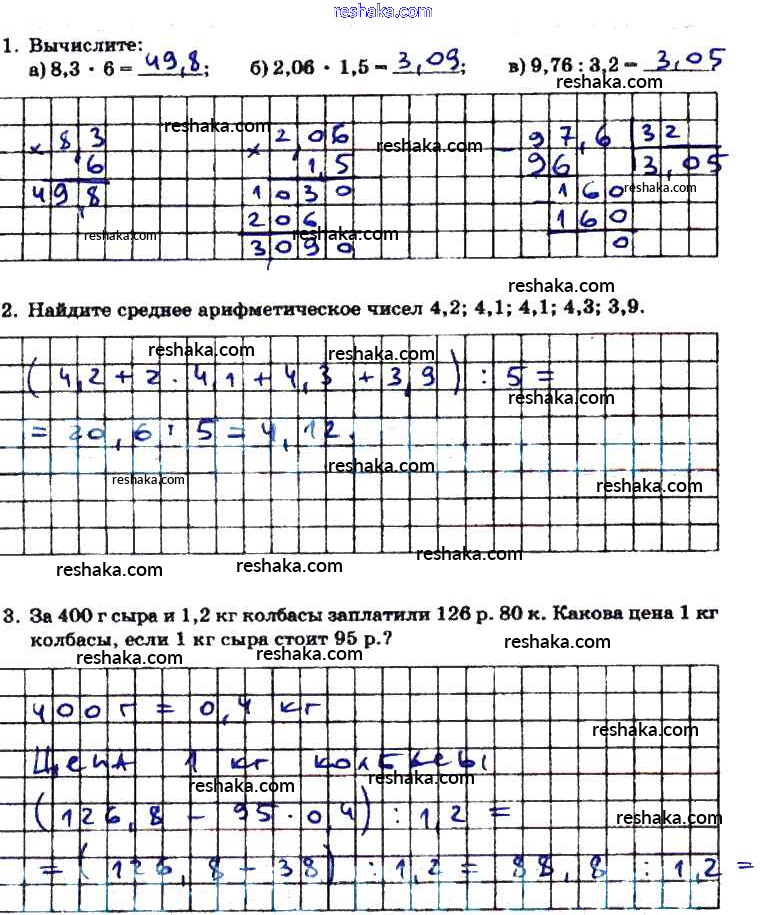 reshaka.com
1. Вычислите:
а) 8,3 · 6 = 49,8; б) 2,06 · 1,5 = 3,09; в) 9,76 : 3,2 = 3,05
reshaka.com
reshaka.com reshaka.com
× 8,3 × 2,06 − 97,6 32
6 1,5 96 3,05
49,8 1030 160 reshaka.com
reshaka.com 206 160
3090 0
reshaka.com
2. Найдите среднее арифметическое чисел 4,2; 4,1; 4,1; 4,3; 3,9.
reshaka.com reshaka.com
(4,2 + 2 · 4,1 + 4,3 + 3,9) : 5 =
reshaka.com
= 20,6 : 5 = 4,12.
reshaka.com
reshaka.com reshaka.com
reshaka.com reshaka.com reshaka.com
3. За 400 г сыра и 1,2 кг колбасы заплатили 126 р. 80 к. Какова цена 1 кг
колбасы, если 1 кг сыра стоит 95 р.?
reshaka.com reshaka.com reshaka.com
400 г = 0,4 кг
reshaka.com
Цена 1 кг колбасы
reshaka.com reshaka.com
(126,8 − 95 · 0,4) : 1,2 =
reshaka.com
= (126,8 − 38) : 1,2 = 88,8 : 1,2 =